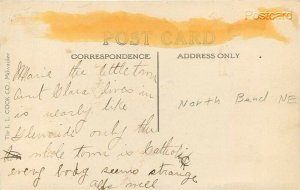 Postcard
POST CARD
CORRESPONDENCE
ADDRESS ONLY
The E. L. COOK CO., Milwaukee
Maria the little town
aunt Clara lives in
is nearly like
Glenwood only the
whole town is Catholic
every body seems strange
alls well
North Bend NE